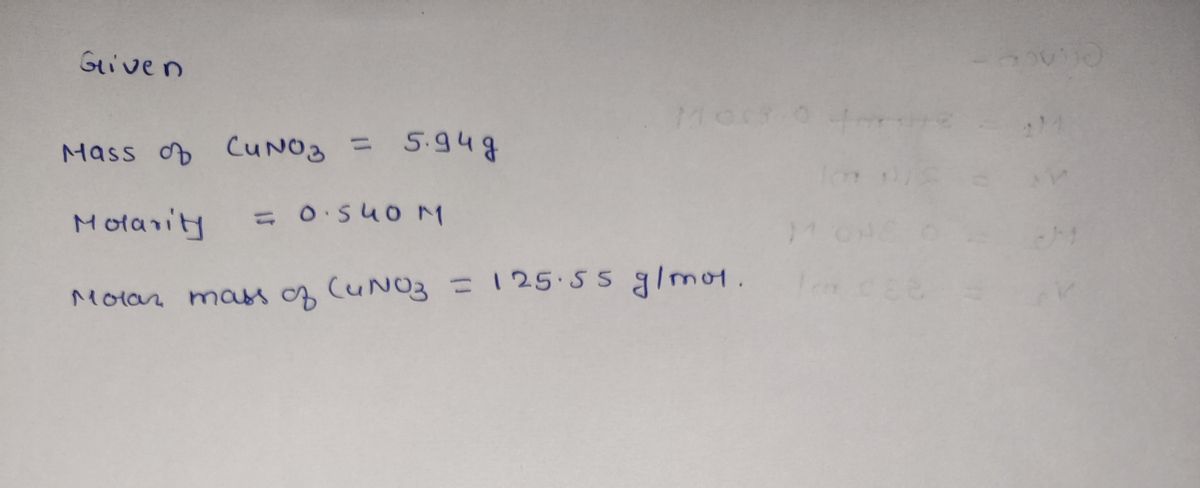 Given
Mass of CuNO3 = 5.94g
Molarity = 0.540 M
Molar mass of CuNO3 = 125.55 g/mol.